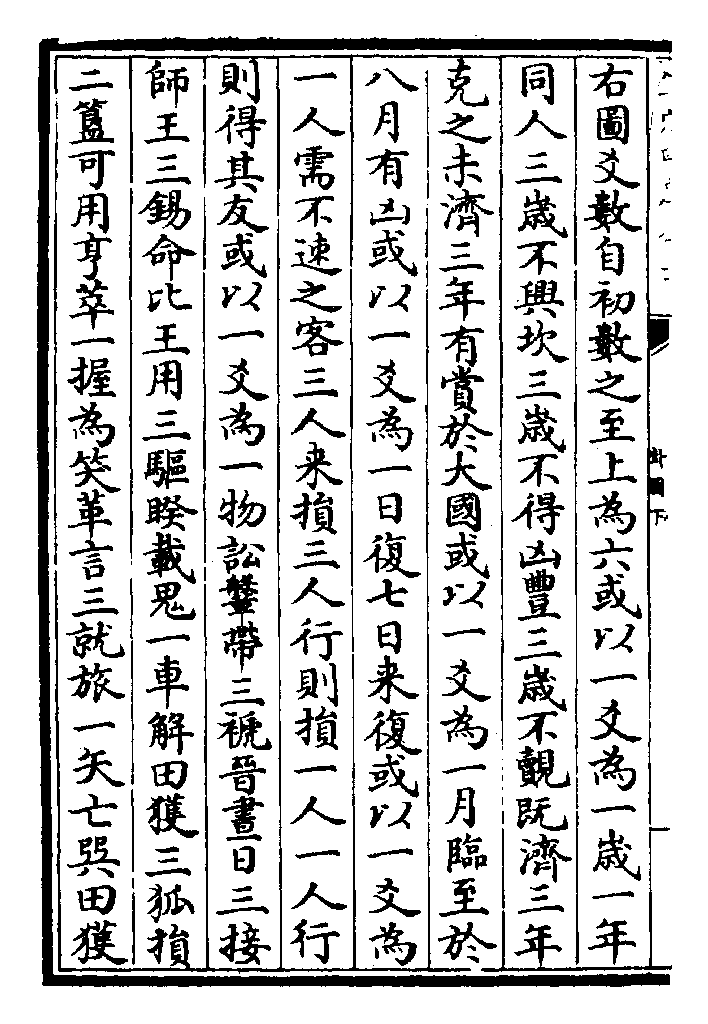 右圖爻數自初數之至上為六或以一爻為一歲一年
同人三歲不興坎三歲不得凶豐三歲不覿既濟三年
克之未濟三年有賞於大國或以一爻為一月臨至於
八月有凶或以一爻為一日復七日来復或以一爻為
一人需不速之客三人来損三人行則損一人一人行
則得其友或以一爻為一物訟鞶帶三褫晉晝日三接
師王三錫命比王用三驅睽載鬼一車解田獲三狐損
二簋可用亨萃一握為笑革言三就旅一矢亡巽田獲
卦圖下